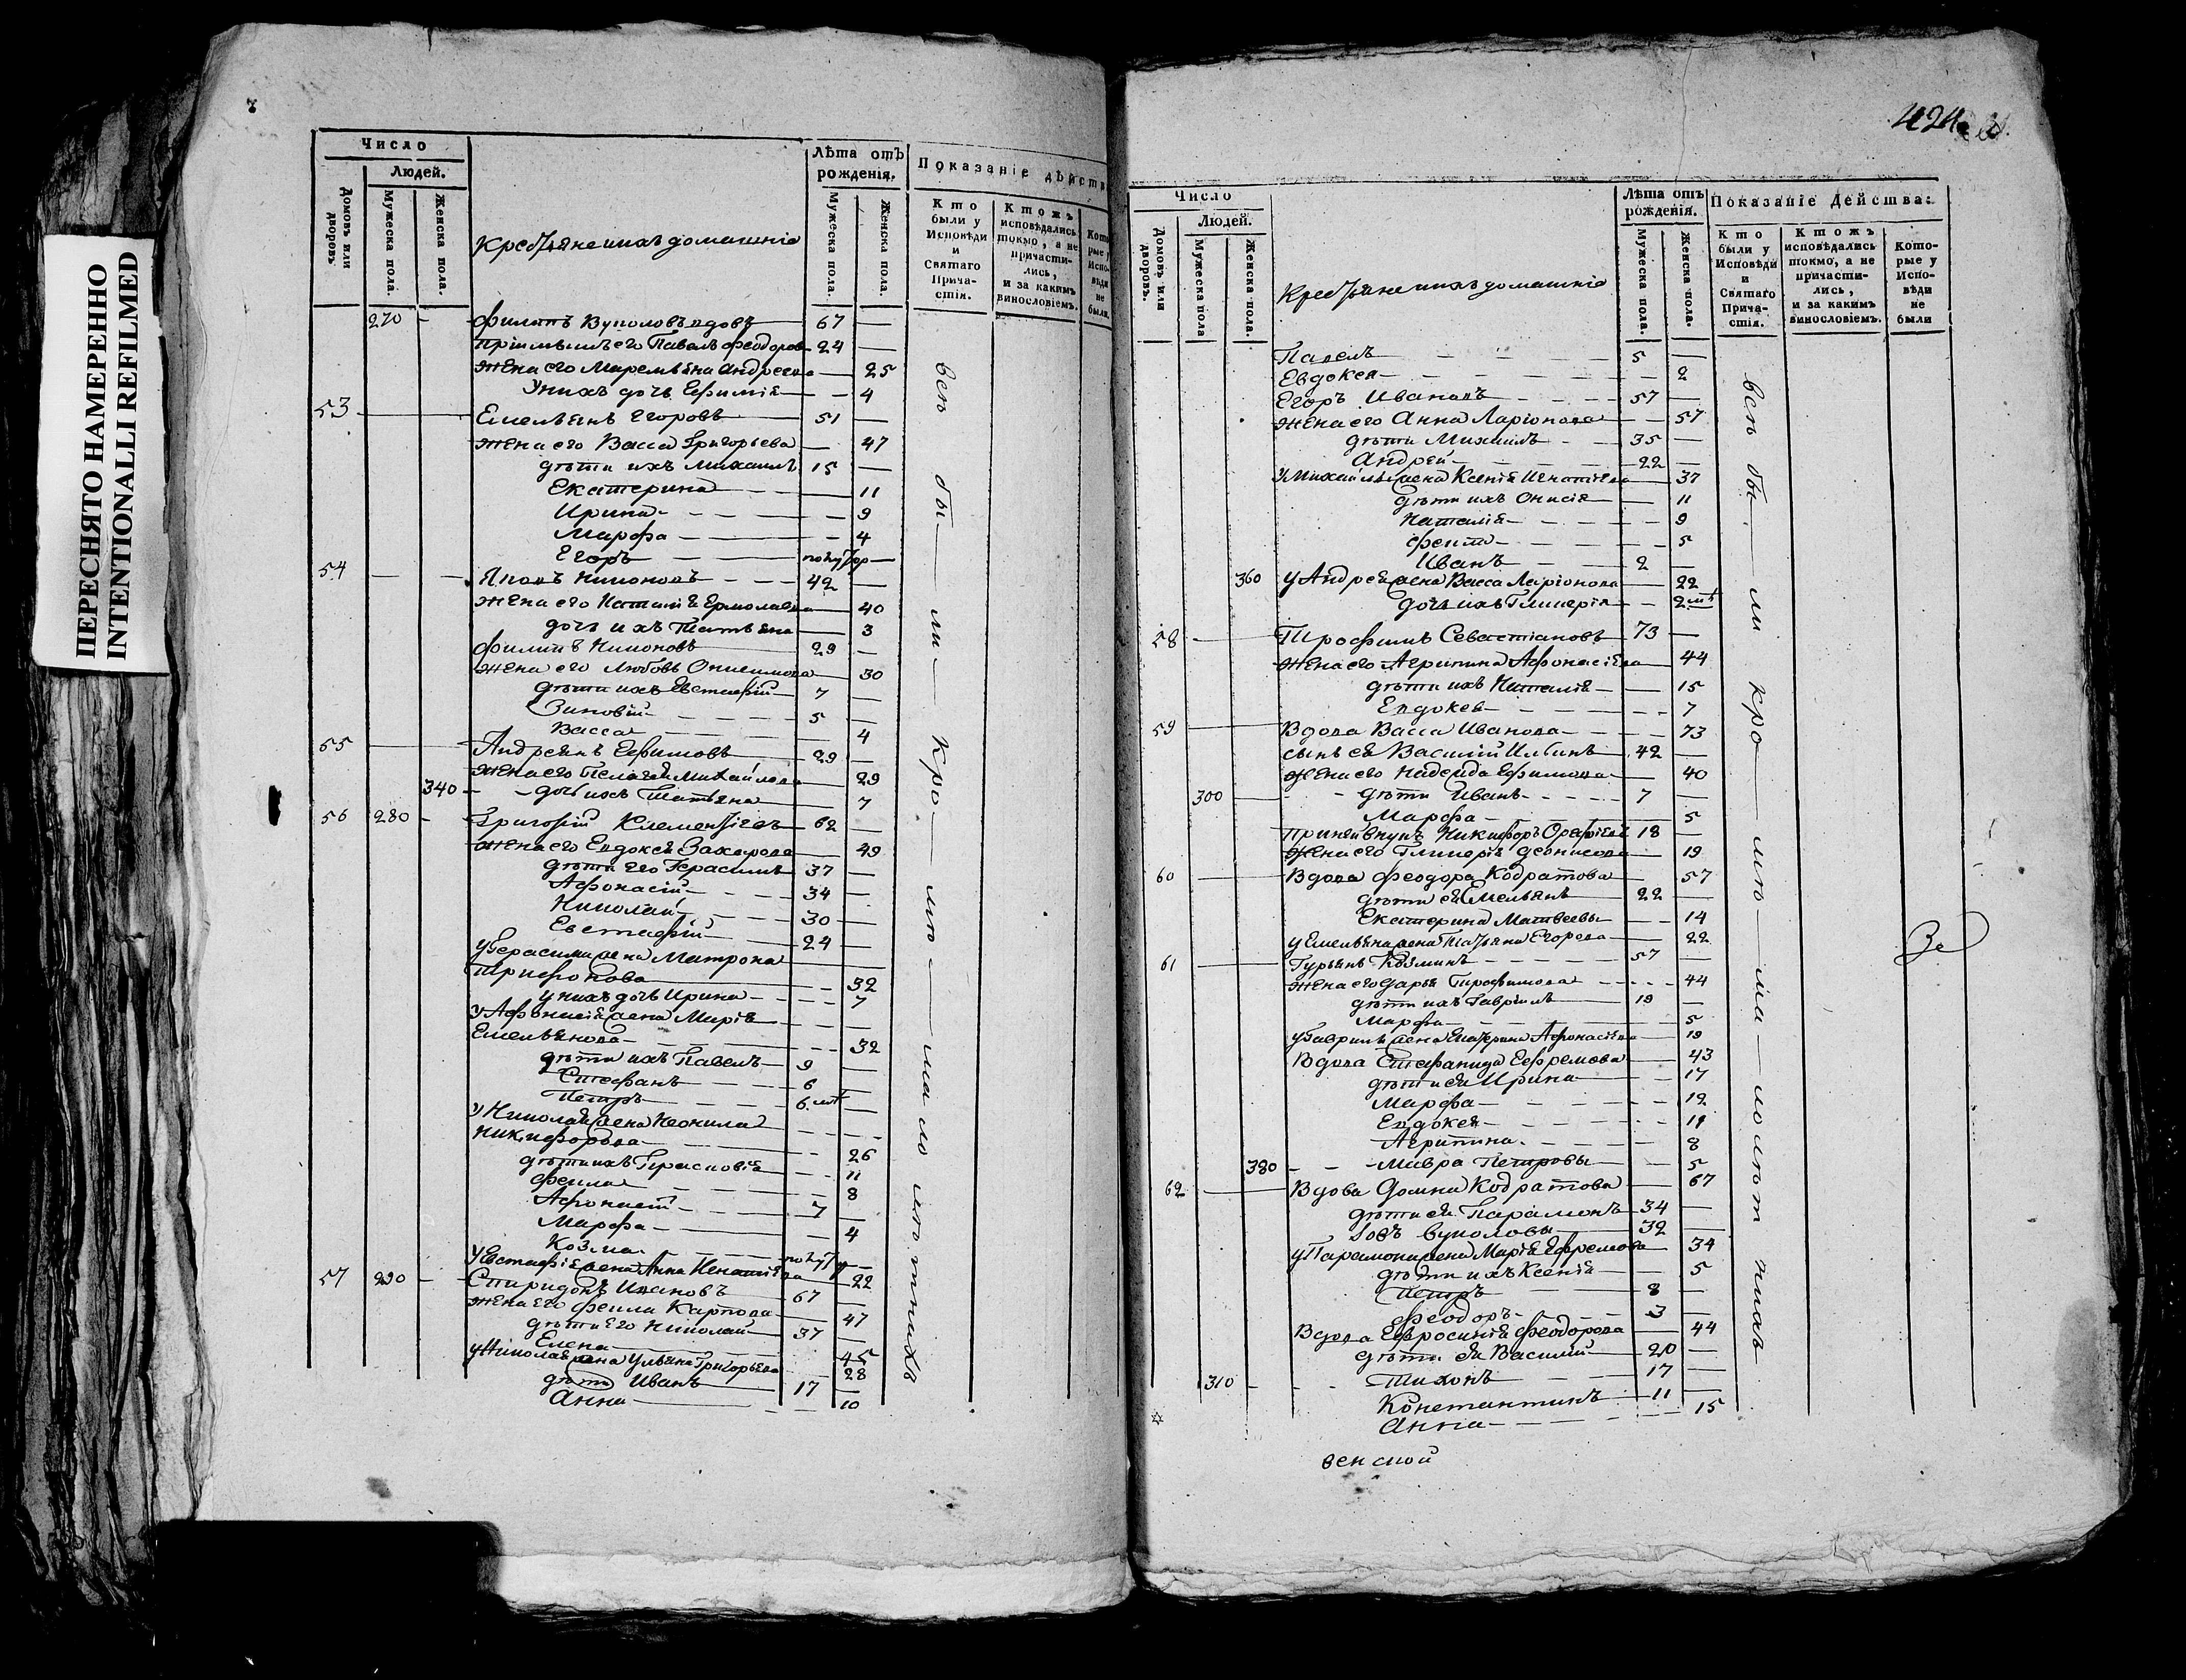 ПЕРЕСНЯТО НАМЕРЕННО
INTENTIONALLI REFILMED
Число
Людей.
Домовъ или дворовъ
Мужеска пола.
Женска пола.
Крестьяне и ихъ домашніе
Лѣта отъ рожденія.
Мужеска пола.
Женска пола.
Показаніе дѣйств
Кто были у Исповѣди и Святаго Причастія.
Ктожъ исповѣдались токмо, а не причастились, и за какимъ винословіемъ.
Которые у Исповѣди не были.
270 Филипъ Вуколовъ вдовъ 67
пріимышъ его Павелъ Феодоровъ 24
жена его Маремьяна Андреева 25
У нихъ дочь Ефимія 4
53 Емельянъ Егоровъ 51
жена его Васса Григорьева 47
дѣти ихъ Михаилъ 15
Екатерина 11
Ирина 9
Марфа 4
Егоръ полутор
54 Яковъ Никоновъ 42
жена его Наталія Ермолаева 40
дочь ихъ Татьяна 3
Филипъ Никоновъ 29
жена его Любовь Онисимова 30
дѣти ихъ Евстафій 7
Зиновій 5
Васса 4
55 Андреянъ Ефимовъ 29
жена его Пелагея Михайлова 29
340 дочь ихъ Татьяна 7
56 280 Григорій Клементіевъ 62
жена его Евдокея Захарова 49
дѣти его Герасимъ 37
Афонасій 34
Николай 30
Евстафій 24
у Герасима жена Матрона
Трифонова 32
у нихъ дочь Ирина 7
у Афонасія жена Марія
Емельянова 32
дѣти ихъ Павелъ 9
Стефанъ 6
Петръ 6 мѣ
у Николая жена Неонила
Никифорова 26
дѣти ихъ Парасковія 11
Фекла 8
Афонасій 7
Марфа 4
Козма полутор
у Евстафія жена Анна Игнатіева 22
57 290 Спиридонъ Ивановъ 67
жена его Фекла Карпова 47
дѣти его Николай 37
Елена 45
у Николая жена Ульяна Григорьева 28
дѣти Иванъ 17
Анна 10
всѣ бы ли кро мѣ ма ло лѣт нихъ
424
Число
Людей.
Домовъ или дворовъ.
Мужеска пола
Женска пола.
Крестьяне и ихъ домашніе
Лѣта отъ рожденія.
Мужеска пола.
Женска пола.
Показаніе Действа:
Кто были у Исповѣди и Святаго Причастія.
Ктожъ исповѣдались токмо, а не причастились, и за какимъ винословіемъ.
Которые у Исповѣди не были
Павелъ 5
Евдокея 2
Егоръ Ивановъ 57
жена его Анна Ларіонова 57
дѣти Михаилъ 35
Андрей 22
У Михайлы жена Ксенія Игнатіева 37
дѣти ихъ Онисія 11
Наталія 9
5
Иванъ 2
360 у Андрея жена Васса Ларіонова 22
дочь ихъ Гликерія 2 мѣ
58 Трофимъ Севастіановъ 73
жена его Агрипина Афонасіева 44
дѣти ихъ Наталія 15
Евдокея 7
59 Вдова Васса Иванова 73
сынъ ея Василій Ильинъ 42
жена его Надежда Ефимова 40
300 дѣти Иванъ 7
Марфа 5
При ней внукъ Никифоръ 18
жена его Гликерія Деонисова 19
60 Вдова Феодора Кодратова 57
дѣти ея Емельянъ 22
Екатерина Матвеевы 14
у Емельяна жена Татьяна Егорова 22
61 Гурьянъ Козминъ 57
жена его Дарья Трофимова 44
дѣти ихъ Гавріилъ 19
Марфа 5
у Гавріила жена Екатерина Афонасіева 19
Вдова Стефанида Ефремова 43
дѣти ея Ирина 17
Марфа 12
Евдокея 11
Агрипина 8
380 Мавра Петровы 5
62 Вдова Домна Кодратова 67
дѣти ея Парамонъ 34
Іовъ Вуколовы 32
у Парамона жена Марія Ефремова 34
дѣти ихъ Ксенія 5
Петръ 8
Феодоръ 3
Вдова Ефросинія Феодорова 44
дѣти ея Василий 20
310 Тихонъ 17
Константинъ 11
Анна 15
всѣ бы ли кро мѣ ма ло лѣт нихъ
венской